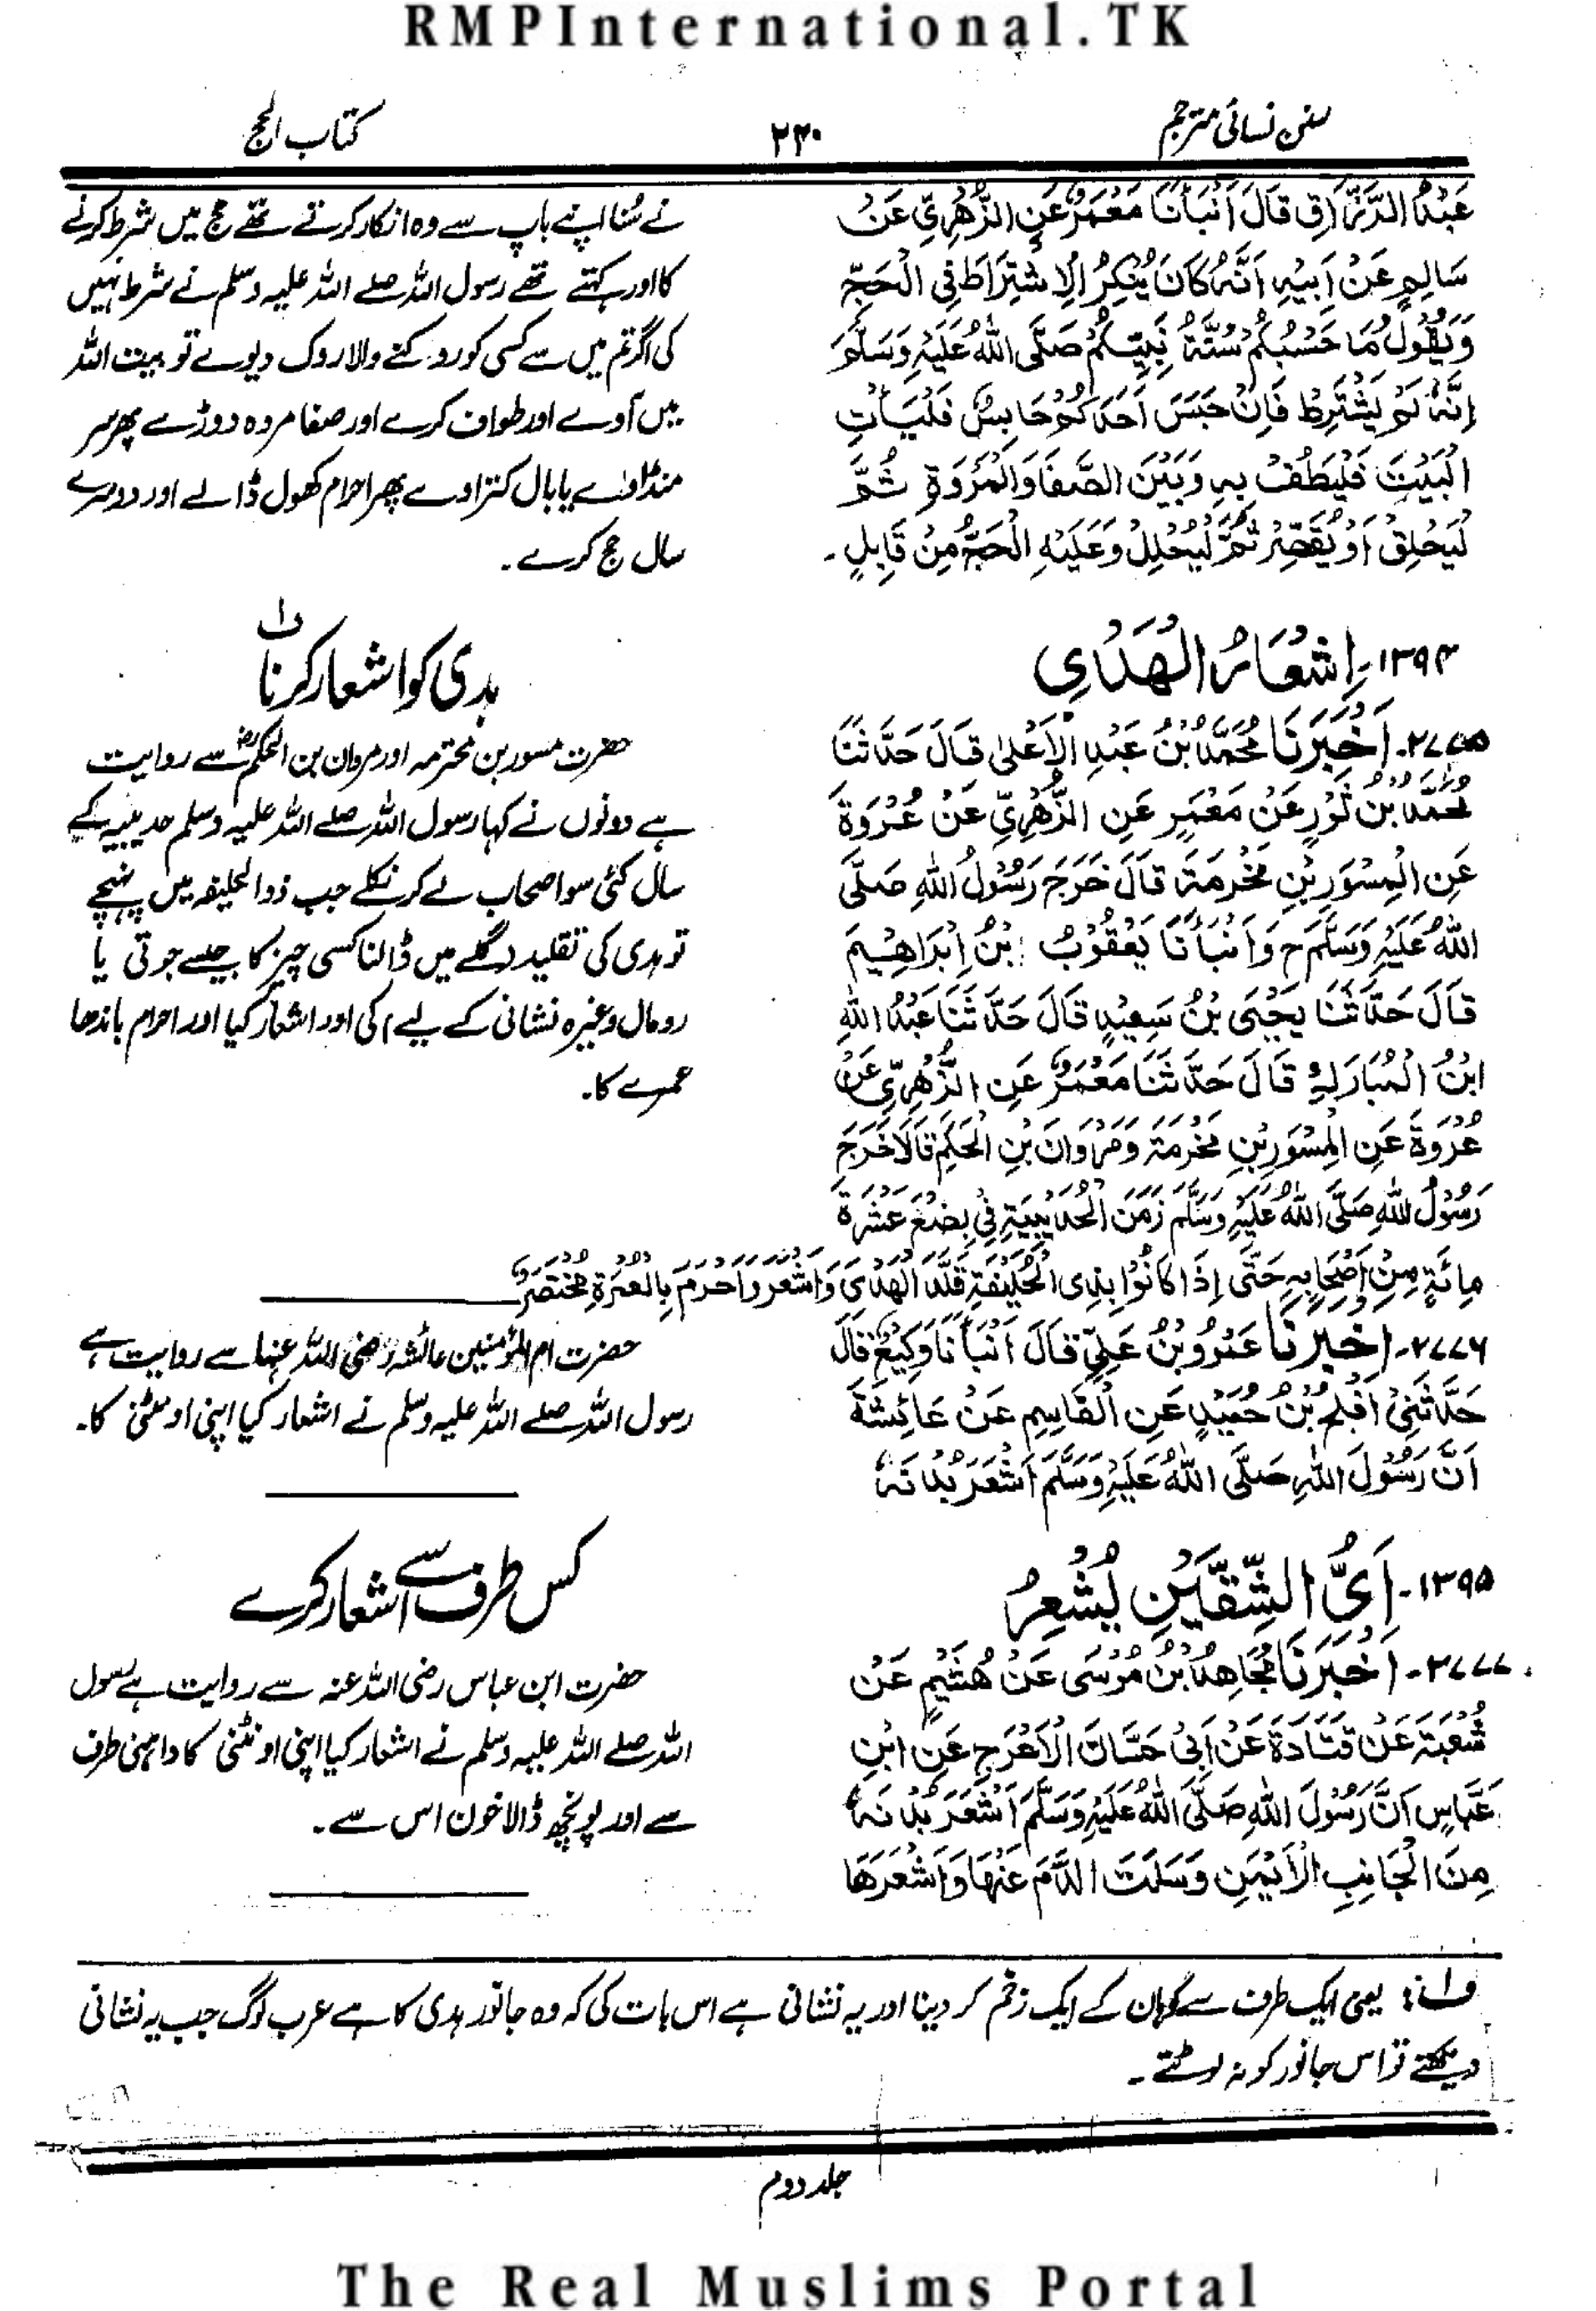 RMPInternational.TK
سنن نسائی مترجم
۲۲۰
کتاب الحج
عَبْدُ الرَّزَّاقِ قَالَ أَنْبَأَنَا مَعْمَرٌ عَنِ الزُّهْرِيِّ عَنْ
سَالِمٍ عَنْ أَبِيْهِ أَنَّهُ كَانَ يُنْكِرُ الْاِشْتِرَاطَ فِي الْحَجِّ
وَيَقُولُ مَا حَسْبُكُمْ سُنَّةُ نَبِيِّكُمْ صَلَّى اللهُ عَلَيْهِ وَسَلَّمَ
إِنَّهُ لَمْ يَشْتَرِطْ فَإِنْ حَبَسَ أَحَدَكُمْ حَابِسٌ فَلْيَأْتِ
الْبَيْتَ فَلْيَطُفْ بِهِ وَبَيْنَ الصَّفَا وَالْمَرْوَةِ ثُمَّ
لْيَحْلِقْ أَوْ يُقَصِّرْ ثُمَّ لْيُحْلِلْ وَعَلَيْهِ الْحَجُّ مِنْ قَابِلٍ ۔
نے سُنا اپنے باپ سے وہ انکار کرتے تھے حج میں شرط کرنے
کا اور کہتے تھے رسول اللہ صلے اللہ علیہ وسلم نے شرط نہیں
کی اگر تم میں سے کسی کو روکنے والا روک دیوے تو بیت اللہ
میں آوے اور طواف کرے اور صفا مروہ دوڑے پھر سر
منڈاوے یا بال کتراوے پھر احرام کھول ڈالے اور دوسرے
سال حج کرے ۔
۱۳۹۴۔ إِشْعَارُ الْهَدْيِ
ہدی کو اشعار کرنا ف۱
۲۷۷۵۔ أَخْبَرَنَا مُحَمَّدُ بْنُ عَبْدِ الْأَعْلٰى قَالَ حَدَّثَنَا
مُحَمَّدُ بْنُ ثَوْرٍ عَنْ مَعْمَرٍ عَنِ الزُّهْرِيِّ عَنْ عُرْوَةَ
عَنِ الْمِسْوَرِ بْنِ مَخْرَمَةَ قَالَ خَرَجَ رَسُوْلُ اللهِ صَلَّى
اللهُ عَلَيْهِ وَسَلَّمَ ح وَأَنْبَأَنَا يَعْقُوْبُ بْنُ إِبْرَاهِيْمَ
قَالَ حَدَّثَنَا يَحْيَى بْنُ سَعِيْدٍ قَالَ حَدَّثَنَا عَبْدُ اللهِ
ابْنُ الْمُبَارَكِ قَالَ حَدَّثَنَا مَعْمَرٌ عَنِ الزُّهْرِيِّ عَنْ
عُرْوَةَ عَنِ الْمِسْوَرِ بْنِ مَخْرَمَةَ وَمَرْوَانَ بْنِ الْحَكَمِ قَالَا خَرَجَ
رَسُوْلُ اللهِ صَلَّى اللهُ عَلَيْهِ وَسَلَّمَ زَمَنَ الْحُدَيْبِيَةِ فِيْ بِضْعَ عَشْرَةَ
مِائَةٍ مِنْ أَصْحَابِهِ حَتَّى إِذَا كَانُوْا بِذِي الْحُلَيْفَةِ قَلَّدَ الْهَدْيَ وَأَشْعَرَ وَأَحْرَمَ بِالْعُمْرَةِ مُخْتَصَرٌ
حضرت مسور بن مخرمہ اور مروان بن الحکمؓ سے روایت
ہے دونوں نے کہا رسول اللہ صلے اللہ علیہ وسلم حدیبیہ کے
سال کئی سو اصحاب لے کر نکلے جب ذو الحلیفہ میں پہنچے
تو ہدی کی تقلید (گلے میں ڈالنا کسی چیز کا جیسے جوتی یا
رومال وغیرہ نشانی کے لیے) کی اور اشعار کیا اور احرام باندھا
عمرے کا۔
۲۷۷۶۔ أَخْبَرَنَا عَمْرُو بْنُ عَلِيٍّ قَالَ أَنْبَأَنَا وَكِيْعٌ قَالَ
حَدَّثَنِيْ أَفْلَحُ بْنُ حُمَيْدٍ عَنِ الْقَاسِمِ عَنْ عَائِشَةَ
أَنَّ رَسُوْلَ اللهِ صَلَّى اللهُ عَلَيْهِ وَسَلَّمَ أَشْعَرَ بُدْنَهُ
حضرت ام المؤمنین عائشہ رضی اللہ عنہا سے روایت ہے
رسول اللہ صلے اللہ علیہ وسلم نے اشعار کیا اپنی اونٹنی کا۔
۱۳۹۵۔ أَيُّ الشِّقَّيْنِ يُشْعِرُ
کس طرف سے اشعار کرے
۲۷۷۷۔ أَخْبَرَنَا مُجَاهِدُ بْنُ مُوْسَى عَنْ هُشَيْمٍ عَنْ
شُعْبَةَ عَنْ قَتَادَةَ عَنْ أَبِيْ حَسَّانَ الْأَعْرَجِ عَنِ ابْنِ
عَبَّاسٍ أَنَّ رَسُوْلَ اللهِ صَلَّى اللهُ عَلَيْهِ وَسَلَّمَ أَشْعَرَ بُدْنَهُ
مِنَ الْجَانِبِ الْأَيْمَنِ وَسَلَتَ الدَّمَ عَنْهَا وَأَشْعَرَهَا
حضرت ابن عباس رضی اللہ عنہ سے روایت ہے رسول
اللہ صلے اللہ علیہ وسلم نے اشعار کیا اپنی اونٹنی کا داہنی طرف
سے اور پونچھ ڈالا خون اس سے ۔
ف۱: یعنی ایک طرف سے کوہان کے ایک زخم کر دینا اور یہ نشانی ہے اس بات کی کہ وہ جانور ہدی کا ہے عرب لوگ جب یہ نشانی
دیکھتے تو اس جانور کو نہ لوٹتے ۔
جلد دوم
The Real Muslims Portal